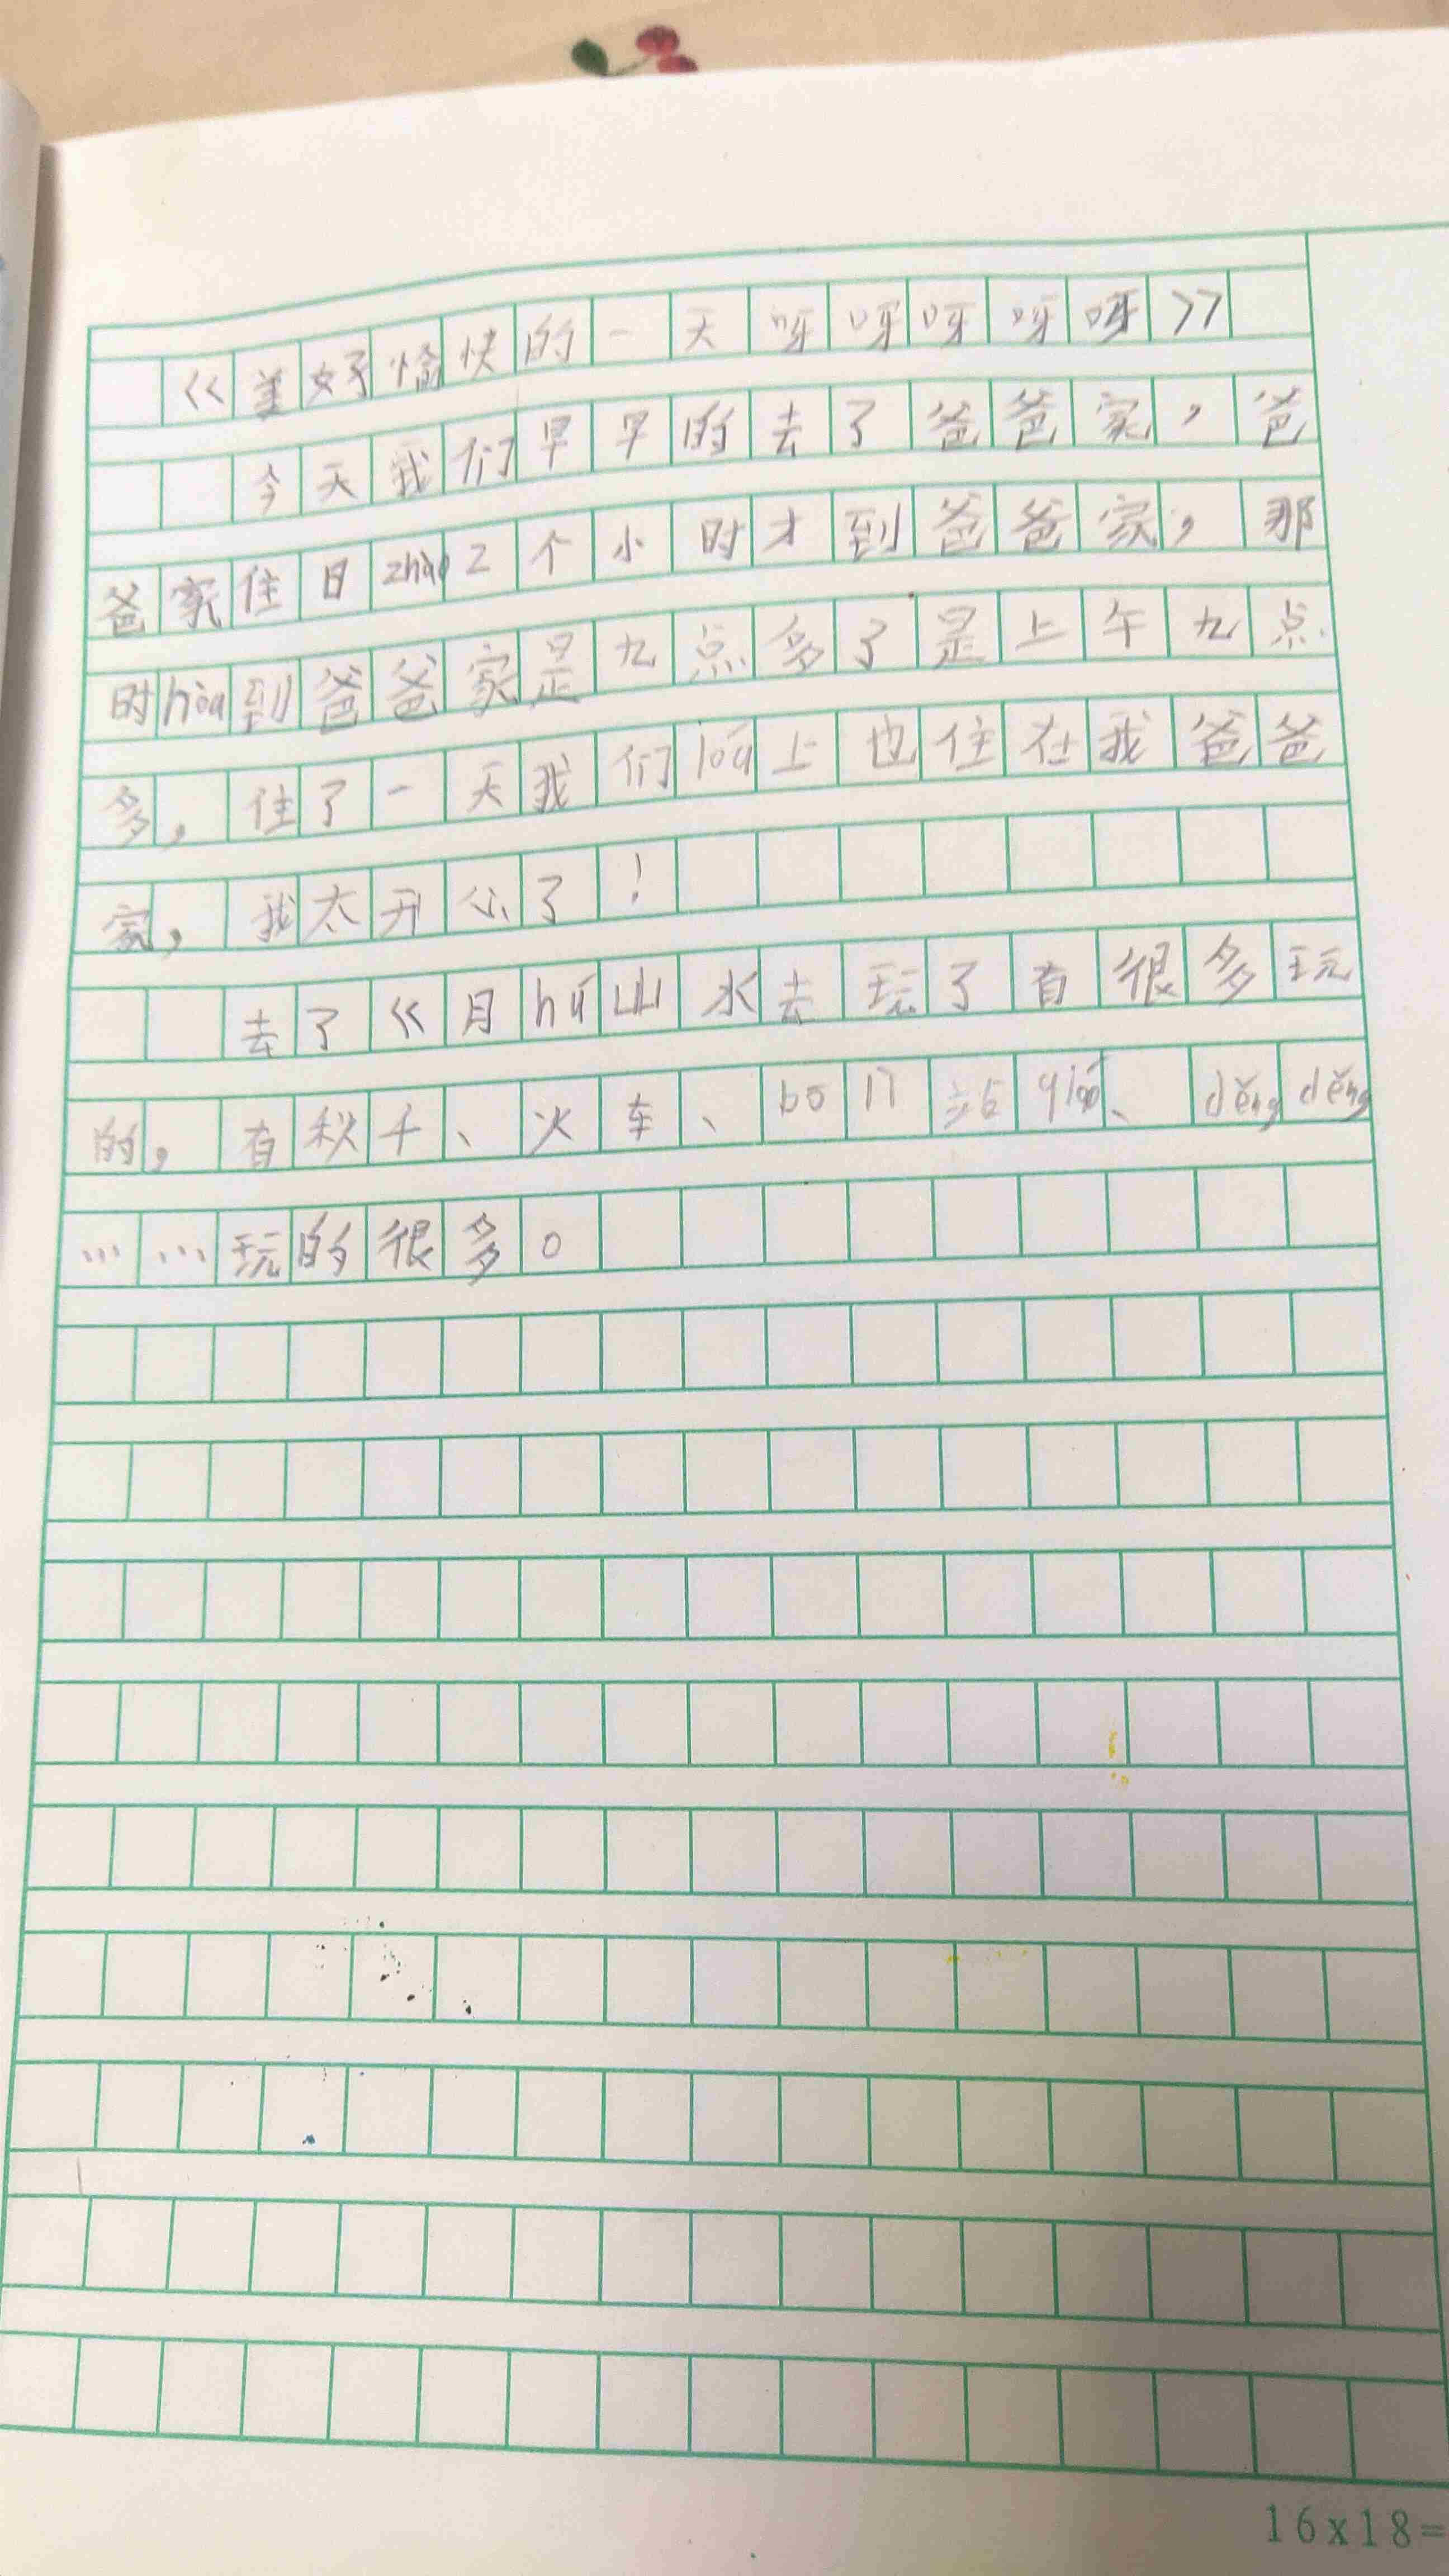 《美好愉快的一天呀呀呀呀呀》
今天我们早早的去了爸爸家，爸
爸家住日zhào2个小时才到爸爸家，那
时hòu到爸爸家是九点多了是上午九点
多，住了一天我们lóu上也住在我爸爸
家，我太开心了！
去了《月hú山水去玩了有很多玩
的，有秋千、火车、 站 、děng děng
……玩的很多。
16x18=